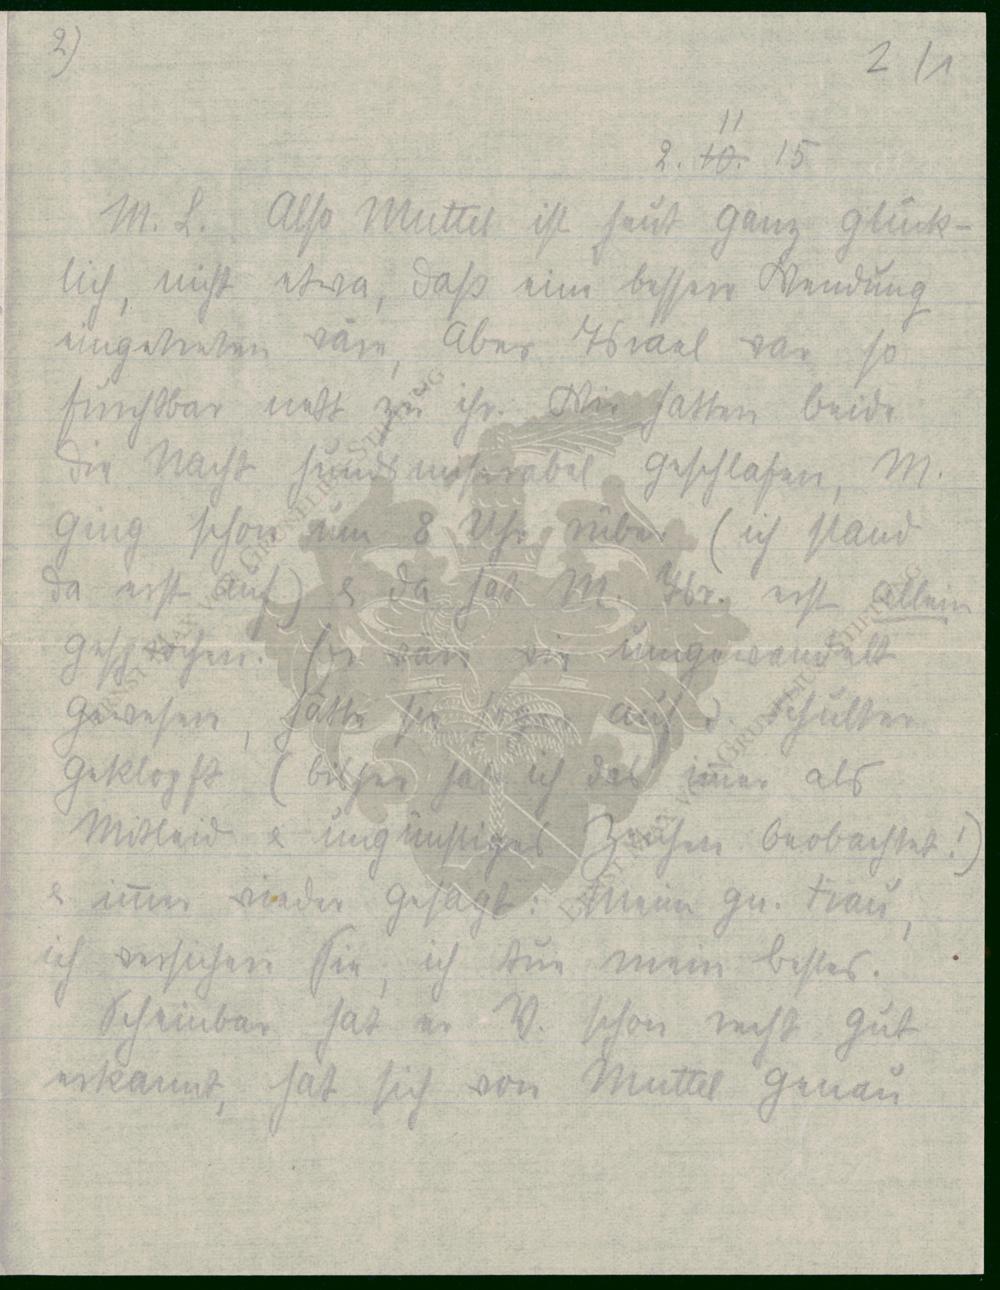 2)
2 /1
11
2. 10. 15
M. L. Also Muttel ist heut ganz glück-
lich, nicht etwa, daß eine bessere Wendung
eingetreten wäre, aber Israel war so
furchtbar nett zu ihr. Wir hatten beide
die Nacht hundsmiserabel geschlafen, M.
ging schon um 8 Uhr rüber (ich stand
da erst auf) & da hat M. Isr. erst allein
gesprochen. Er wäre wie umgewandelt
gewesen, hätte sie auf d. Schulter
geklopft (bisher hab ich das immer als
Mitleid & ungünstiges Zeichen beobachtet!)
& immer wieder gesagt: Meine gn. Frau,
ich versichere Sie, ich tue mein bestes.
Scheinbar hat er V. schon recht gut
erkannt, hat sich von Muttel genau